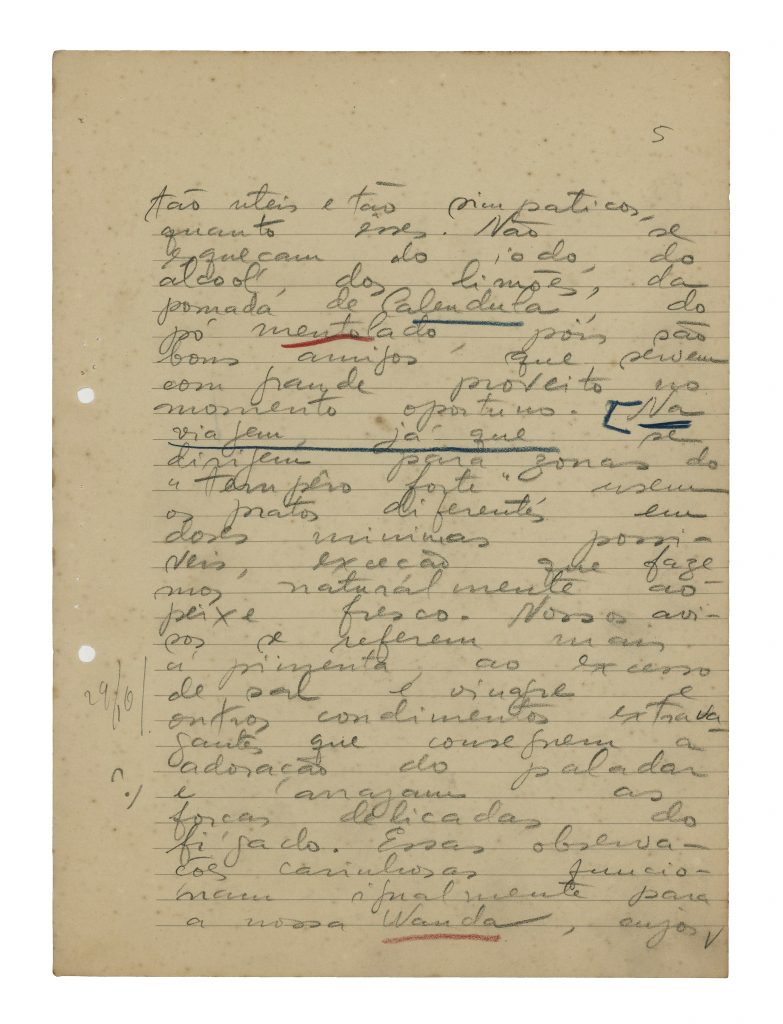 5
tão uteis e tão simpaticos,
quanto êsses. Não se
esqueçam do iodo, do
álcool, dos limões, da
pomada de Calendula, do
pó mentolado, pois são
bons amigos, que servem
com grande proveito no
momento oportuno. [Na
viagem, já que se
dirigem para zonas do
"tempêro forte" usem
os pratos diferentes em
doses minimas possi-
veis, exceção que faze
mos naturalmente ao
peixe fresco. Nossos avi-
sos se referem mais
á pimenta, ao excesso
de sal e vinagre e
outros condimentos extrava-
gantes que conseguem a
adoração do paladar
e arrazam as
forças delicadas do
figado. Essas observa-
ções carinhosas funcio-
nam igualmente para
a nossa Wanda, cujos
29/10/
?